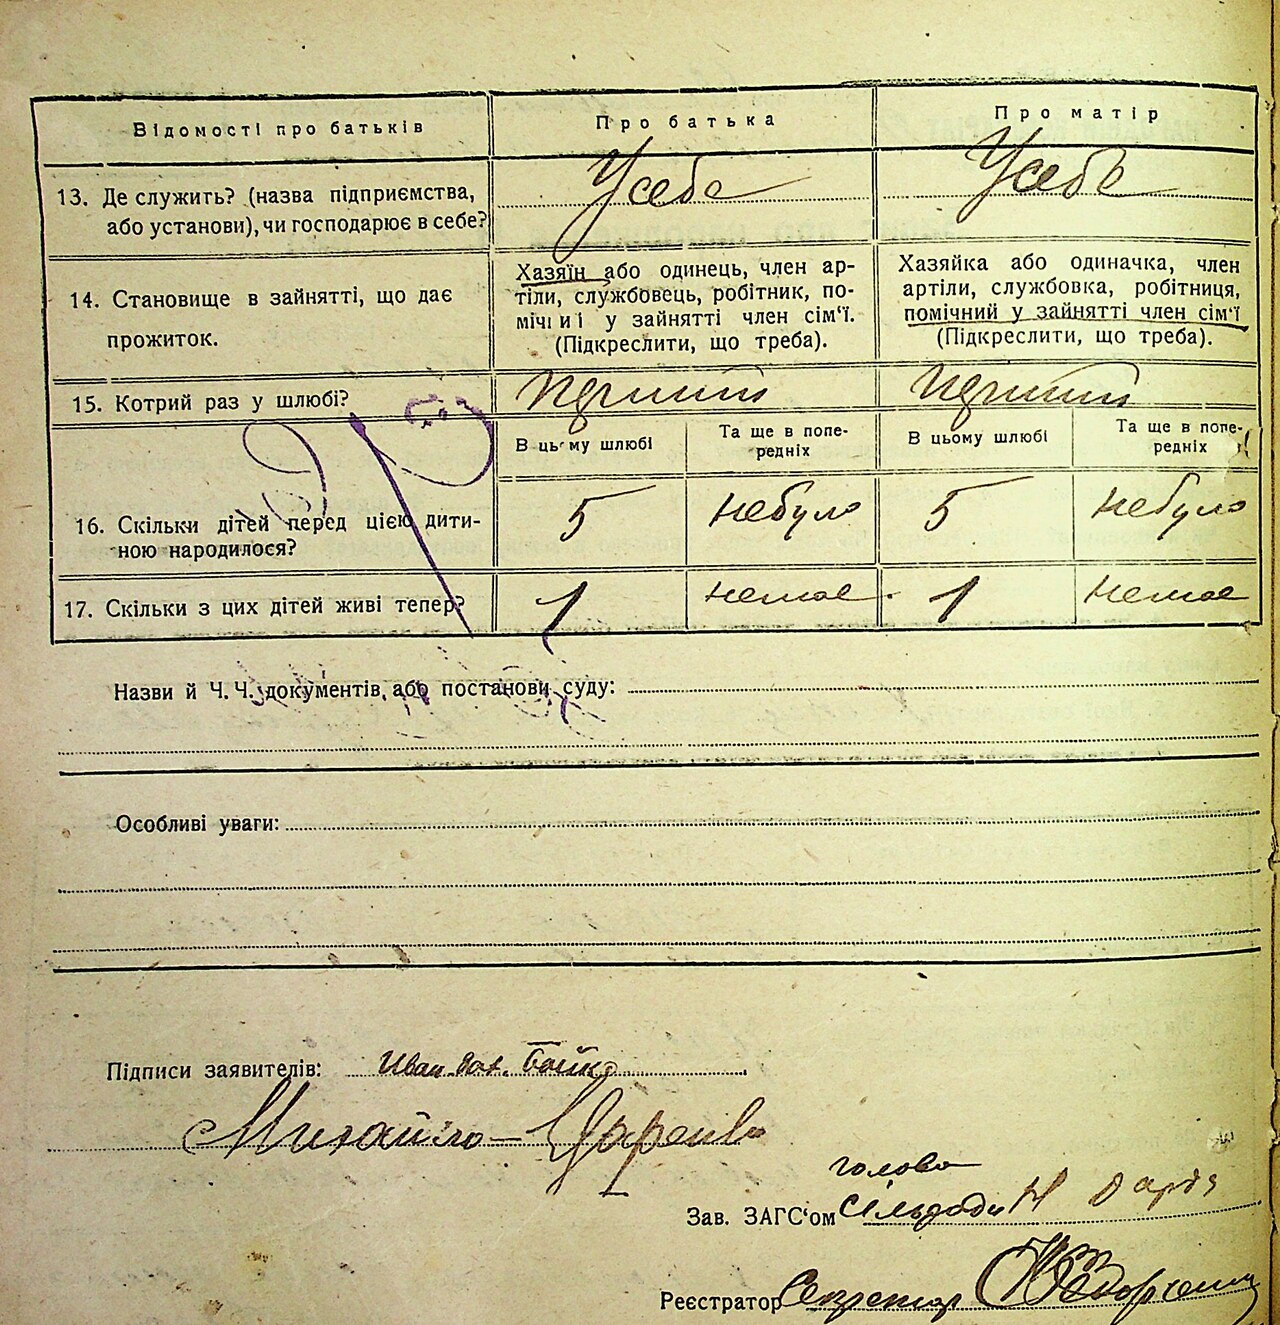 Відомості про батьків
Про батька
Про матір
13. Де служить? (назва підприємства,
або установи), чи господарює в себе?
Усебе
Усебе
14. Становище в зайнятті, що дає
прожиток.
Хазяїн або одинець, член ар-
тіли, службовець, робітник, по-
мічниі у зайнятті член сім'ї.
(Підкреслити, що треба).
Хазяйка або одиначка, член
артіли, службовка, робітниця,
помічний у зайнятті член сім'ї
(Підкреслити, що треба).
15. Котрий раз у шлюбі?
В цьму шлюбі
Та ще в попе-
редніх
В цьому шлюбі
Та ще в попе-
редніх
16. Скільки дітей перед цією дити-
ною народилося?
5
небуло
5
небуло
17. Скільки з цих дітей живі тепер?
1
немає
1
немає
Назви й Ч. Ч. документів, або постанови суду:
Особливі уваги:
Підписи заявителів: Иван Бойко
Михайло
голова
Зав. ЗАГС'ом сільради
Реєстратор Секретар